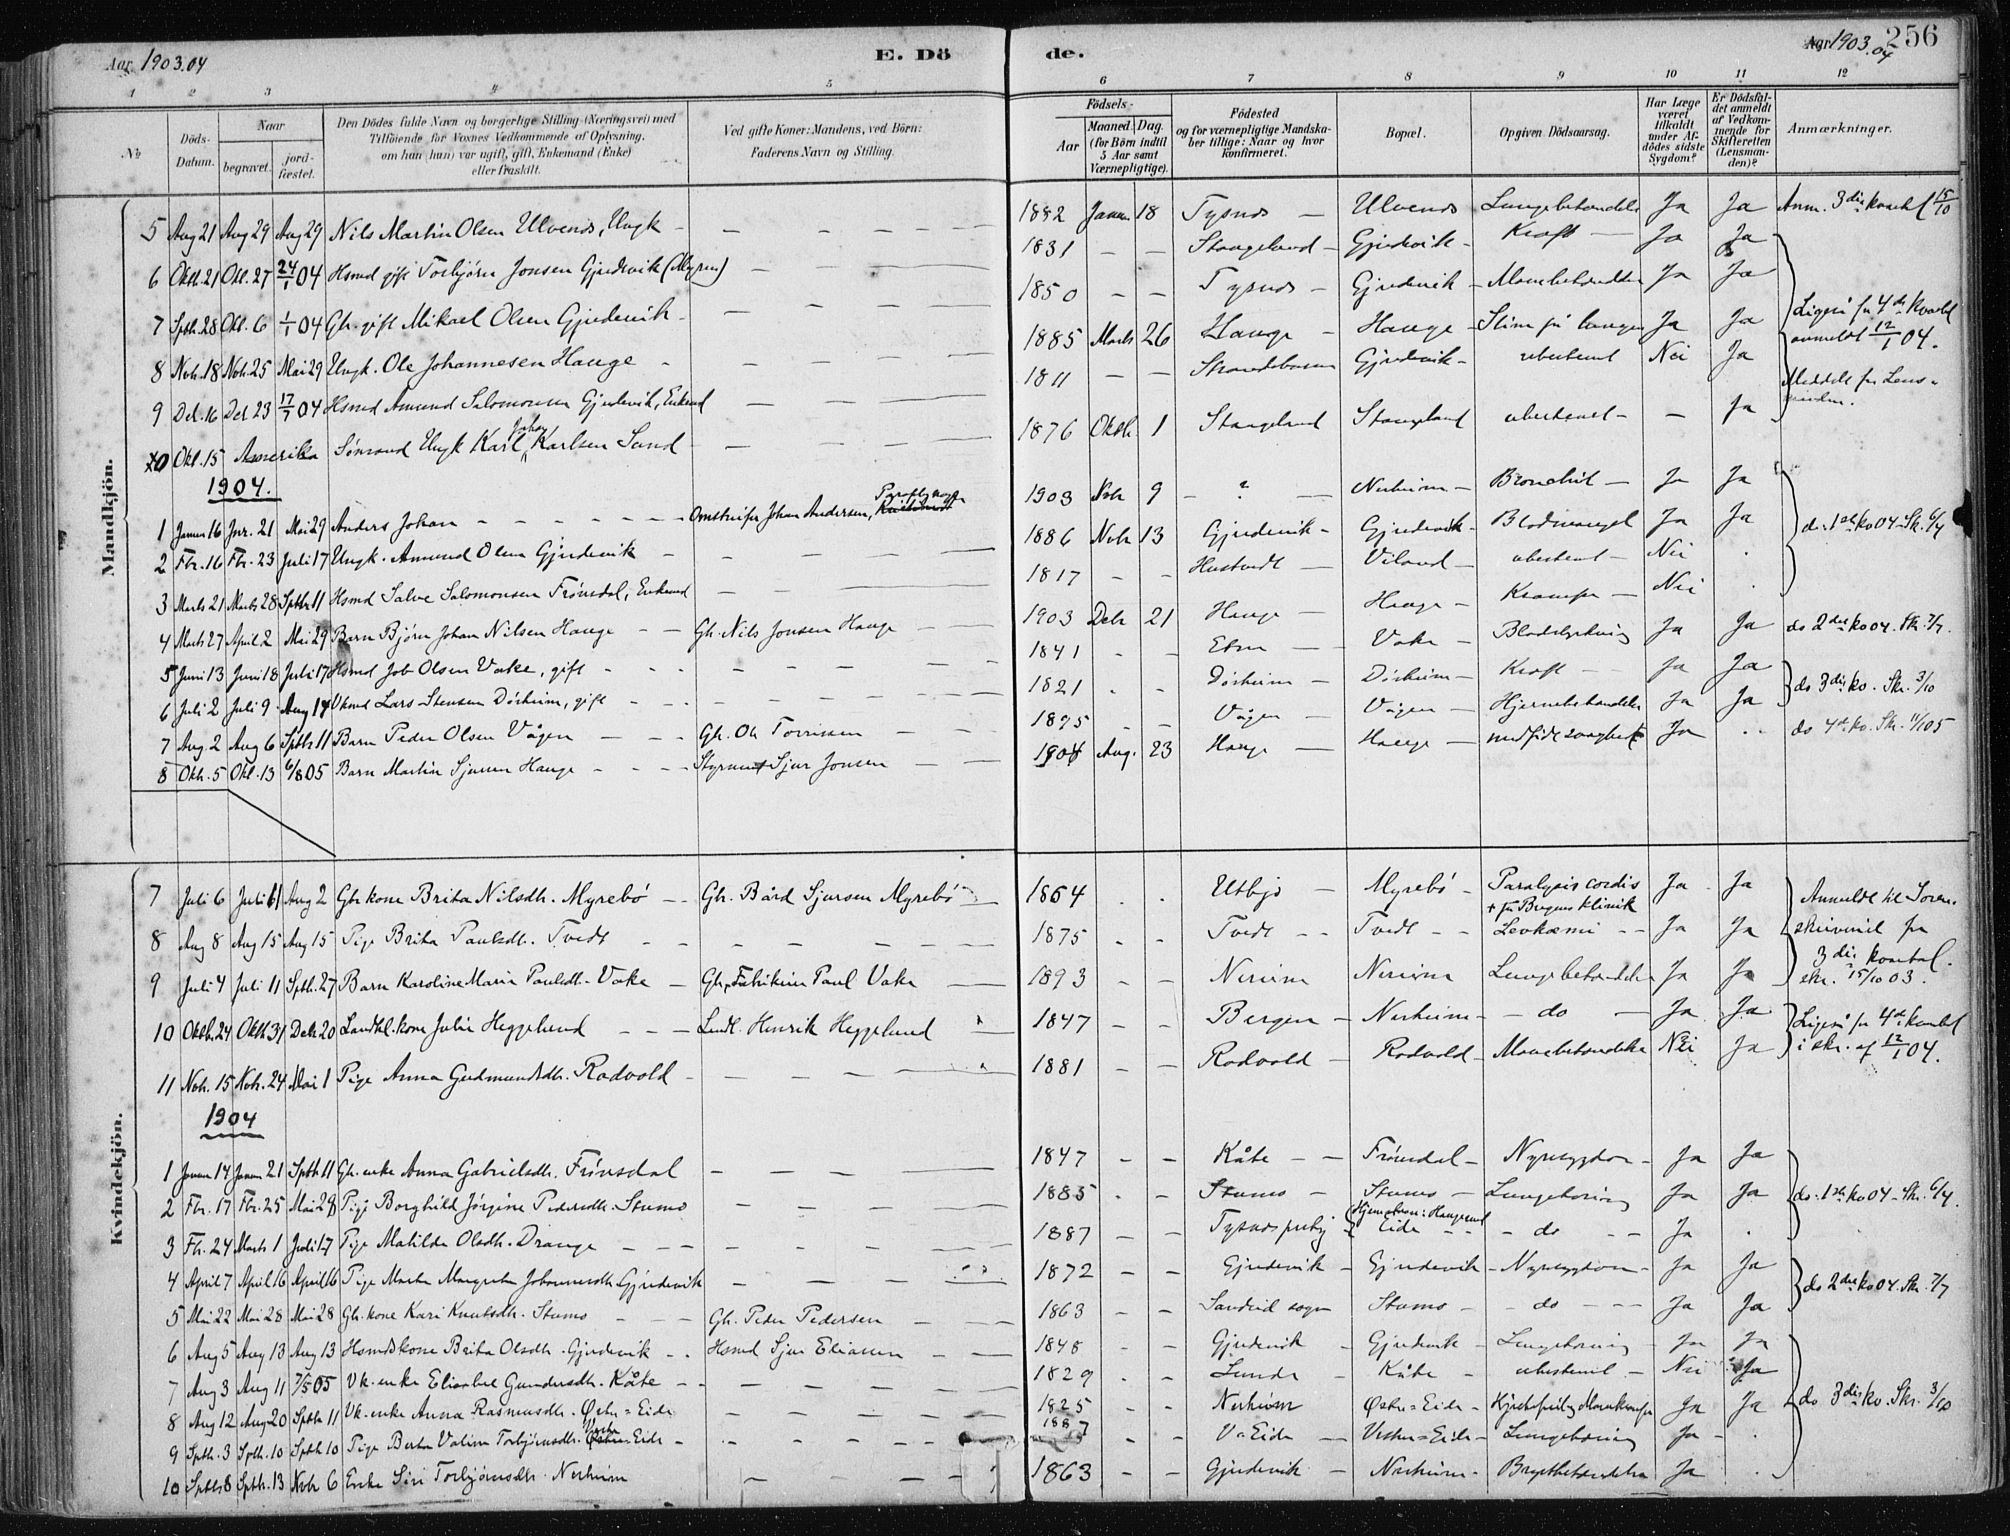 Aar 1903.04
E. Dö
de.
Aar 1903.04
256
1 2 3 4 5 6 7 8 9 10 11 12
№
Döds-Datum.
Naar
begravet.
jord-fæstet.
Den Dödes fulde Navn og borgerlige Stilling (Næringsvei) med Tilföiende for Voxnes Vedkommende af Oplysning, om han (hun) var ugift, gift, Enkemand (Enke) eller fraskilt.
Ved gifte Koner: Mandens, ved Börn: Faderens Navn og Stilling.
Födsels-
Aar
Maaned. Dag. (for Börn indtil 5 Aar samt Værnepligtige).
Födested og for værnepligtige Mandskaber tillige: Naar og hvor konfirmeret.
Bopæl.
Opgiven Dödsaarsag.
Har Læge været tilkaldt under Afdödes sidste Sygdom?
Er Dödsfaldet anmeldt af Vedkommende for Skifteretten (Lensmanden)?
Anmærkninger.
Mandkjön.
5 Aug 21 Aug 29 Aug 29 Nils Martin Olsen Ulvenes, Ungk 1882 Januar 18 Tysnes Ulvenes Lungebetændelse Ja Ja Anm. 3die kvartal 15/10
6 Oktb. 21 Okt. 27 24/1 04 Hsmd gift Torbjørn Jonsen Gjerdevik (Myren) 1831 Stangeland Gjerdevik Kræft Ja Ja
7 Sptb. 28 Okt. 6 1/1 04 Gb. gift Mikael Olsen Gjerdevik 1850 Tysnes Gjerdevik Mavebetændelse Ja Ja Ligeså for 4de kvartal anmeldt 12/1 04.
8 Nvb. 18 Nvb. 25 Mai 29 Ungk. Ole Johannesen Hauge 1885 Marts 26 Hauge Hauge Slim på lungen Ja Ja
9 Det. 16 Det 23 17/7 04 Hsmd Amund Salomonsen Gjerdevik, Enkemd 1811 Gjerdevik ubestemt Nei Ja
10 Okt. 15 Amerika Sønsønd Ungk Karl Johan Karlsen Sund 1876 Oktb. 1 Stangeland Stangeland ubestemt Ja
1904.
1 Januar 16 Jnr. 21 Mai 29 Anders Johan Omstreifer Johan Andersen, 1903 Nvb 9 ? Nerheim Bronchit Ja Ja
2 Fbr. 16 Fbr. 23 Juli 17 Ungk. Amund Olsen Gjerdevik 1886 Nvbr 13 Gjerdevik Gjerdevik Blodmangel Ja Ja do. 1ste kv 04 Skr. 6/4
3 Marts 21 Marts 28 Sptb 11 Hsmd Salve Salomonsen Frønsdal, Enkemd 1817 Hustvedt Viland ubestemt Nei
4 Marts 27 April 2 Mai 29 Barn Bjørn Johan Nilsen Hauge Gb. Nils Jonsen Hauge 1903 Debr 21 Hauge Hauge Krampe Nei
5 Juni 13 Juni 18 Juli 17 Hsmd Job Olsen Vake, gift 1841 Etne Vake Ja Ja do 2det kv 04. Skr. 7/7
6 Juli 2 Juli 9 Aug 14 Lars Stensen Dørheim, gift 1821 Dørheim Dørheim Kræft Ja Ja do 3die kv. Skr. 3/10
7 Aug. 2 Aug 6 Sptb 11 Barn Peder Olsen Vågen Gb. Ole Torrissen 1895 Vågen Vågen Hjernebetændelse Ja Ja
8 Oktb. 5 Okt. 13 6/8 05 Barn Martin Sjursen Hauge Styrmand Sjur Jonsen 1904 Aug. 23 Hauge Hauge medfødt svaghed Ja do 4de kv. Skr. 11/1 05
Kvindekjön.
7 Juli 6 Juli 11 Aug 2 Gbr kone Brita Nilsdtr. Myrebø Gb. Bård Sjursen Myrebø 1864 Utbjo Myrebø Paralysis cordis Ja Ja Anmeldt til Soren-
+ på Bergens klinik
8 Aug 8 Aug 15 Aug 15 Pige Brita Paulsdtr. Tvedt 1875 Tvedt Tvedt Levkæmi Ja Ja skriveriet for
9 Juli 4 Juli 11 Sptb. 27 Barn Karoline Marie Paulsdtr. Vake Gb, Fabrikeier Paul Vake 1893 Nerheim Nerheim Lungebetændelse Ja Ja 3die kvartal. skr. 15/10 03.
10 Oktb. 24 Oktb 31 Debr 20 Landhl. kone Julie Heggelund Landl. Henrik Heggelund 1847 Bergen Nerheim do Ja Ja Ligeså for 4de kvartal
11 Nvb. 15 Nvb. 24 Mai 1 Pige Anna Gudmundsdtr. Rødvold 1881 Rødvold Rødvold Mavebetændelse Nei Ja i skr. af 12/1 04.
1904
1 Januar 14 Januar 21 Sptb 11 Gb. enke Anna Gabrielsdtr. Frønsdal 1847 Kåte Frønsdal Nyresygdom Ja Ja
2 Fbr. 17 Fbr. 25 Mai 28 Pige Borghild Jørgine Pedersdtr. Stumo 1885 Stumo Stumo Lungetæring Ja Ja do. 1ste kv 04 Skr. 6/4.
3 Fbr. 24 Marts 1 Juli 17 Pige Matilde Olsdtr. Drange 1887 Eide do Ja
4 April 7 April 16 April 16 Pige Marta Margreta Johannesdtr. Gjerdevik 1872 Gjerdevik Gjerdevik Nyresygdom Ja Ja
5 Mai 22 Mai 28 Mai 28 Gb. kone Kari Knutsdtr. Stumo Gb. Peder Pedersen 1863 Sandeid sogn Stumo do Ja Ja do 2det kv 04 Skr. 7/7
6 Aug 5 Aug 13 Aug 13 Hsmdskone Brita Olsdtr. Gjerdevik Hsmd Sjur Eliasen 1848 Gjerdevik Gjerdevik Lungetæring Ja Ja
7 Aug 3 Aug 11 7/5 05 Vk. enke Elisabet Gundersdtr. Kåte 1829 Lunde Kåte ubestemt Nei Ja
8 Aug 12 Aug 20 Sptb 11 Vk. enke Anna Rasmusdtr. Østre = Eide 1825 Nerheim Østre = Eide Ja Ja do 3die kv. Skr. 3/10
9 Sptb. 3 Sptb. 10 Sptb 10 Pige Berta Valine Torbjørnsdtr. Vestre Eide 1887 V = Eide Vestre = Eide Lungetæring Ja
10 Sptb 8 Sptb. 13 Nvbr 6 Enke Siri Torbjørnsdtr. Nerheim 1863 Gjerdevik Nerheim Brystbetændelse Ja